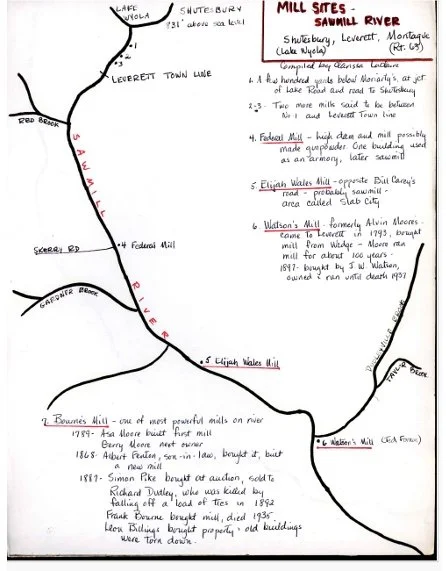 MILL SITES -
SAWMILL RIVER
Shutesbury, Leverett, Montague
(Lake Wyola) (Rt. 63)
LAKE WYOLA
SHUTESBURY
831' above sea level
1
2
3
LEVERETT TOWN LINE
RED BROOK
SAWMILL
RIVER
SKERRY RD
4 Federal Mill
GARDNER BROOK
5 Elijah Wales Mill
DUDLEYVILLE BROOK
TAYLOR BROOK
6 Watson's Mill
Compiled by Clarissa
1. A few hundred yards below Moriarty's, at jct
of Lake Road and road to Shutesbury
2-3- Two more mills said to be between
No 1 and Leverett Town line
4. Federal Mill - high dam and mill possibly
made gunpowder. One building used
as an armory, later sawmill
5 Elijah Wales Mill - opposite Bill Carey's
road - probably sawmill -
area called Slab City
6 Watson's Mill - formerly Alvin Moores -
came to Leverett in 1793, bought
mill from Wedge - Moore ran
mill for about 100 years -
1897- bought by J.W. Watson,
owned & ran until death 1937
7. Bourne's Mill - one of most powerful mills on river
1789- Asa Moore built first mill
Berry Moore next owner
1868- Albert Fenton, son-in-law, bought it, built
a new mill
1887- Simon Pike bought at auction, sold to
Richard Dudley, who was killed by
falling off a load of ties in 1892
Frank Bourne bought mill, died 1935
Leon Billings bought property - old buildings
were torn down.